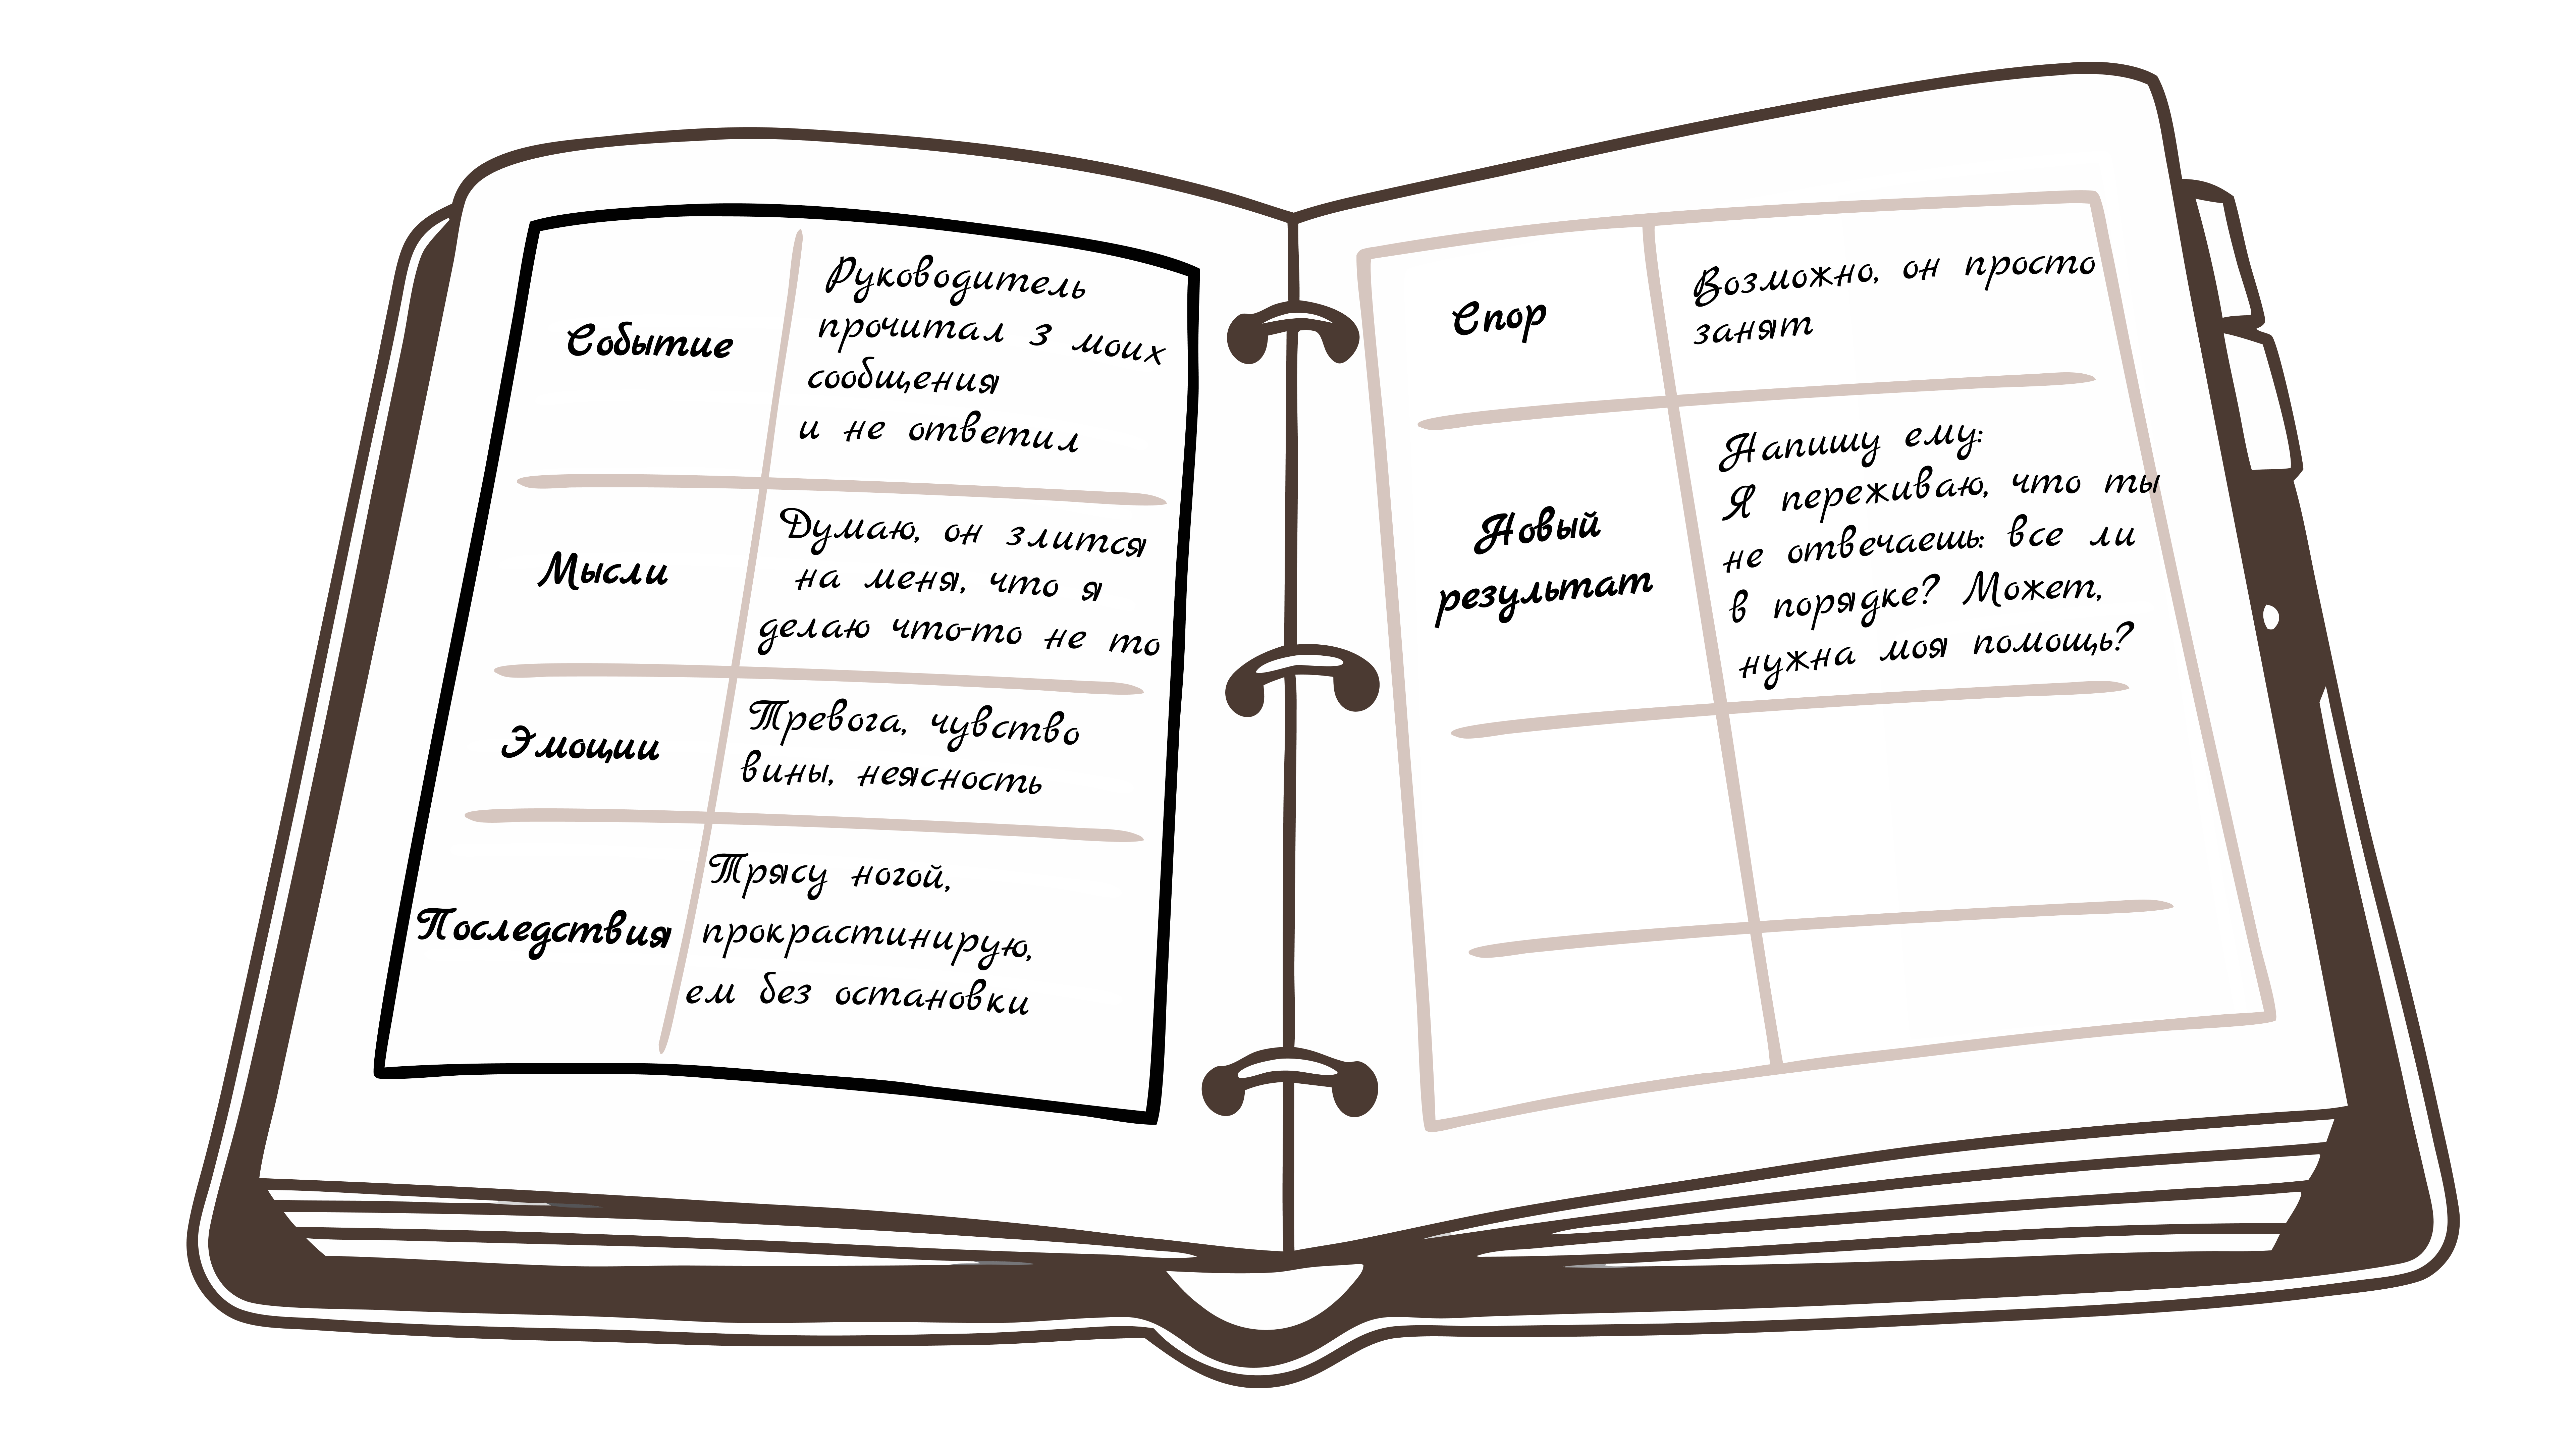 Событие
Руководитель
прочитал 3 моих
сообщения
и не ответил
Мысли
Думаю, он злится
на меня, что я
делаю что-то не то
Эмоции
Тревога, чувство
вины, неясность
Последствия
Трясу ногой,
прокрастинирую,
ем без остановки
Спор
Возможно, он просто
занят
Новый
результат
Напишу ему:
Я переживаю, что ты
не отвечаешь: все ли
в порядке? Может,
нужна моя помощь?